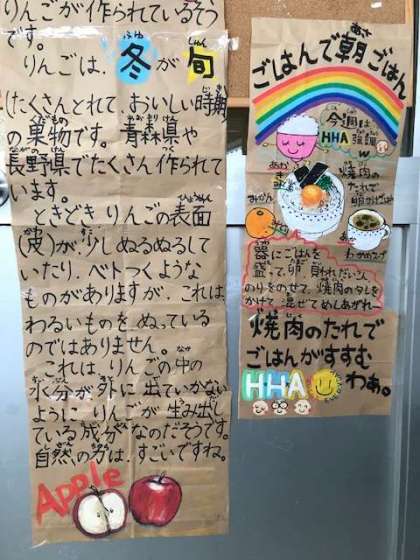 りんごが作られているそう
です。
りんごは、冬が旬
(たくさんとれて、おいしい時期)
の果物です。青森県や
長野県でたくさん作られて
います。
ときどきりんごの表面
(皮)が少しぬるぬるして
いたり、ベトつくような
ものがありますが、これは、
わるいものをぬっている
のではありません。
これは、りんごの中の
水分が外に出ていかない
ようにりんごが生み出し
ている成分なのだそうです。
自然の力は すごいですね。
Apple
ごはんで朝ごはん
今週は
HHA
焼肉の
たれで
卵かけごはん
みかん
わかめスープ
器にごはんを
盛って、卵、貝われだいこん、
のりをのせて、焼肉のタレを
かけて 混ぜてめしあがれー
焼肉のたれで
ごはんがすすむ
わぁ。
HHA